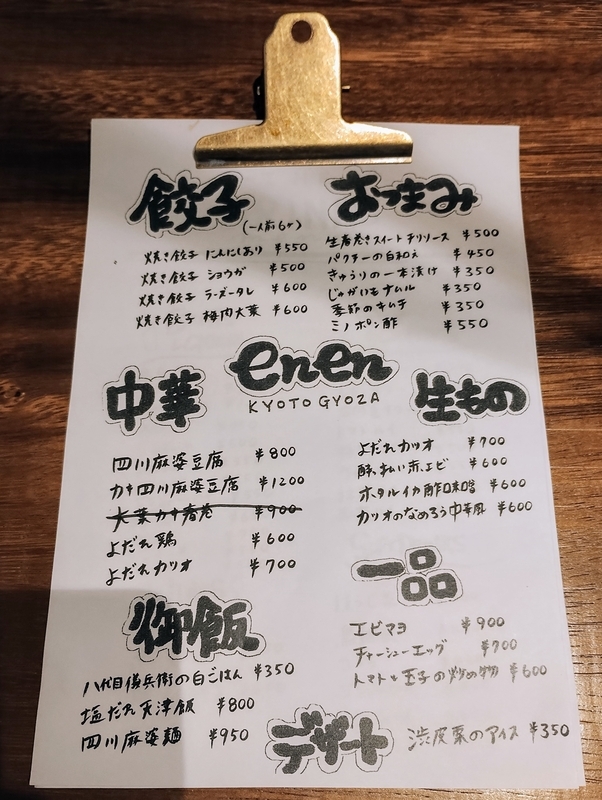 餃子
(一人前6ヶ)
焼き餃子 にんにく(あり) ¥550
焼き餃子 ショウガ ¥500
焼き餃子 ラーズータレ ¥600
焼き餃子 梅肉大葉 ¥600
おつまみ
生春巻きスイートチリソース ¥500
パクチーの白和え ¥450
きゅうりの一本漬け ¥350
じゃがいもナムル ¥350
季節のキムチ ¥350
ミノポン酢 ¥550
enen
KYOTO GYOZA
中華
四川麻婆豆腐 ¥800
カキ四川麻婆豆腐 ¥1200
大葉カキ春巻 ¥900
よだれ鶏 ¥600
よだれカツオ ¥700
生もの
よだれカツオ ¥700
酔っ払い赤エビ ¥600
ホタルイカ酢味噌 ¥600
カツオのなめろう中華風 ¥600
御飯
八代目儀兵衛の白ごはん ¥350
塩だれ天津飯 ¥800
四川麻婆麺 ¥950
一品
エビマヨ ¥900
チャーシューエッグ ¥700
トマトと玉子の炒め物 ¥600
デザート
渋皮栗のアイス ¥350